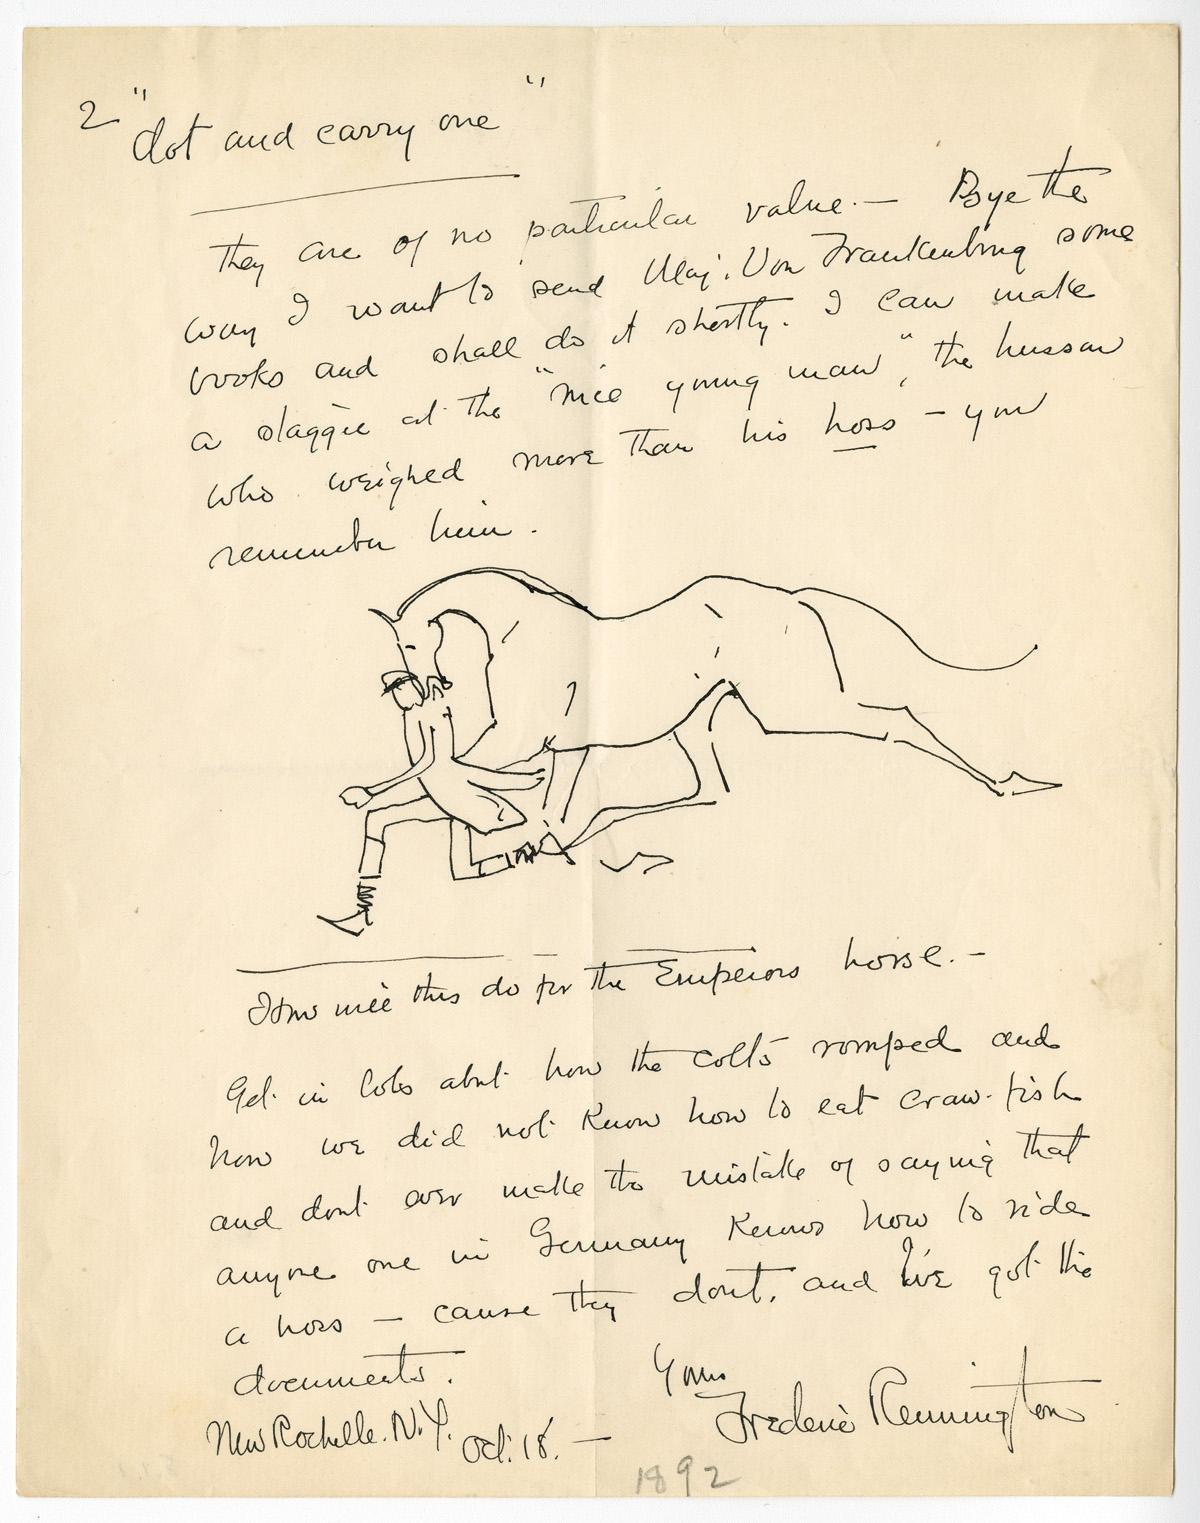 2 "dot and carry one"
They are of no particular value. — Bye the
way I want to send Maj. Von Frankenburg some
books and shall do it shortly. I can make
a staggie at the "nice young man", the hussar
who weighed more than his hoss — you
remember him.
How nice this do for the Emperors horse. —
Get in lots abut how the colts romped and
how we did not know how to eat craw-fish
and dont ever make the mistake of saying that
anyone one in Germany Knows how to ride
a hoss — cause they dont, and I've got the
documents.
Yours
Frederic Remington
New Rochelle. N.Y. Oct. 18. —
1892